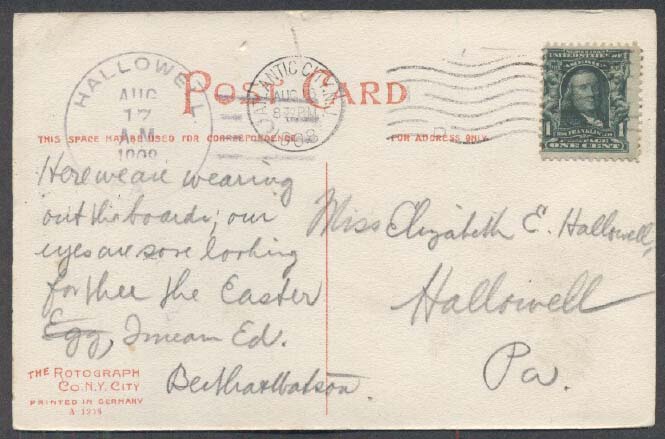 HALLOWELL
AUG
17
A.M
1908
POST CARD
ATLANTIC CITY, N.J.
AUG
8 30 PM
1908
UNITED STATES OF AMERICA
1 FRANKLIN 1
POSTAGE
ONE CENT
THIS SPACE MAY BE USED FOR CORRESPONDENCE
FOR ADDRESS ONLY
Here we are wearing
out the boards; our
eyes are sore looking
for thee the Easter
Egg, I mean Ed.
Bertha + Watson.
Miss Elizabeth E. Hallowell,
Hallowell
Pa.
THE ROTOGRAPH
CO. N.Y. CITY
PRINTED IN GERMANY